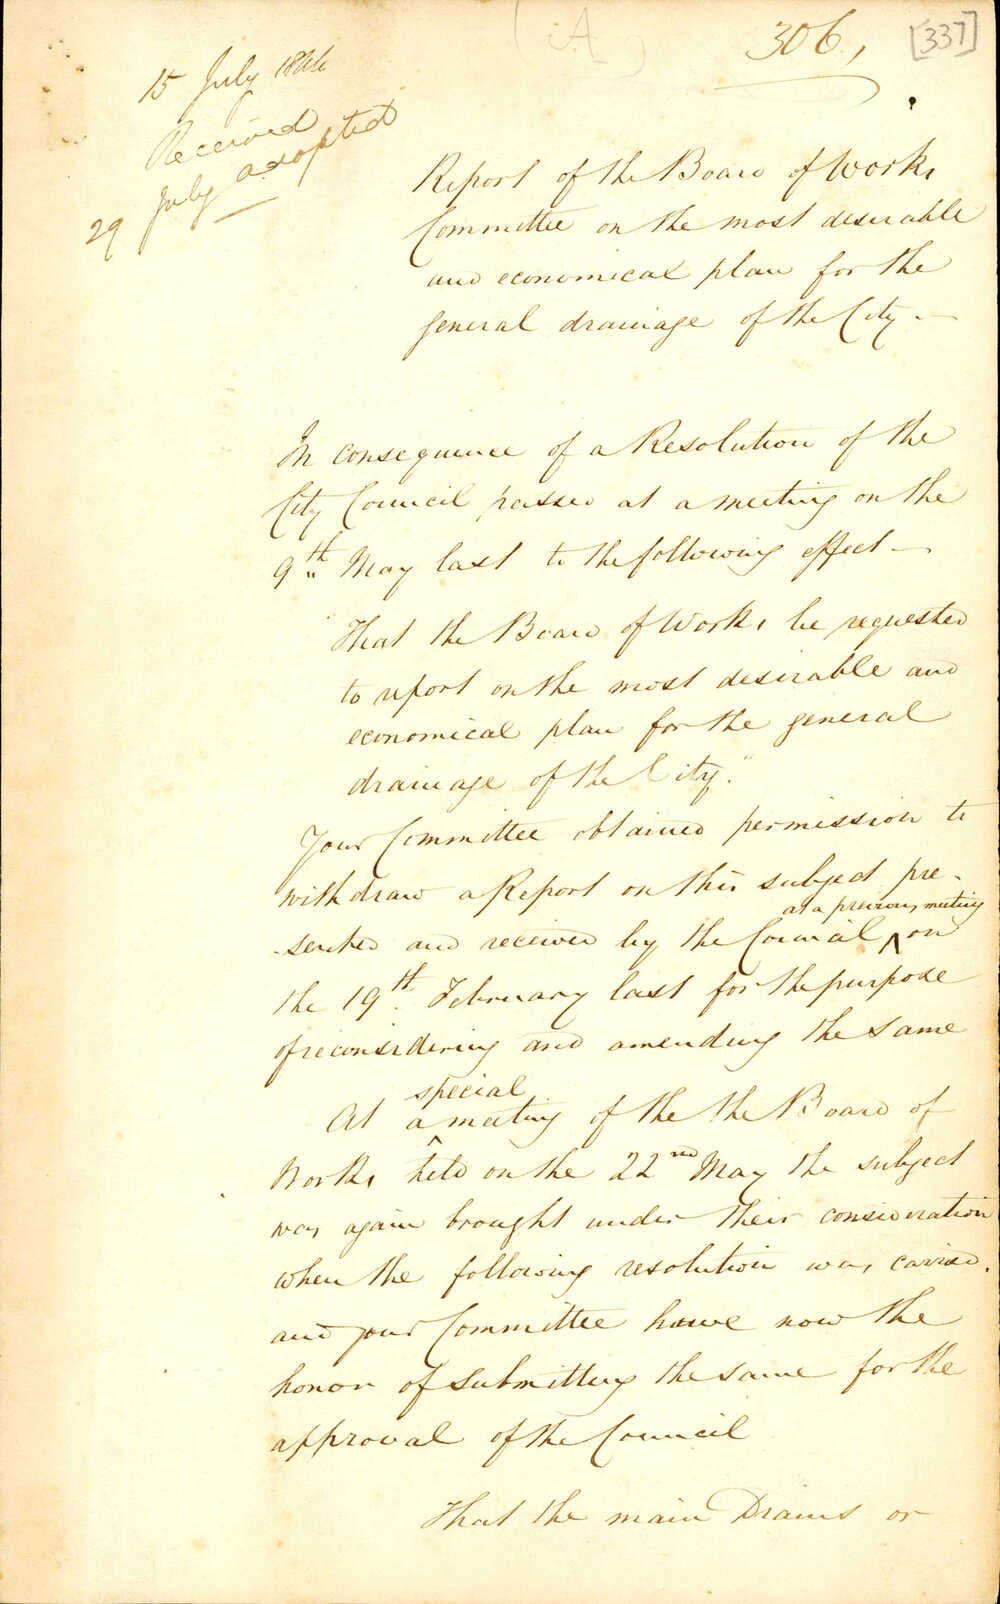 (A)
306,
[337]
15 July 1846
Received
29 July adopted
Report of the Board of Works
Committee on the most desirable
and economical plan for the
general drainage of the City.—
In consequence of a Resolution of the
City Council passed at a meeting on the
9th May last to the following effect—
"That the Board of Works be requested
to report on the most desirable and
economical plan for the general
drainage of the City."
Your Committee obtained permission to
withdraw a Report on this subject pre-
at a previous meeting
-sented and received by the Council ^ on
the 19th February last for the purpose
of reconsidering and amending the same
special
At a meeting of the the Board of
Works ^ held on the 22nd May the subject
was again brought under their consideration
when the following resolution was carried.
and your Committee have now the
honor of submitting the same for the
approval of the Council
That the main Drains or